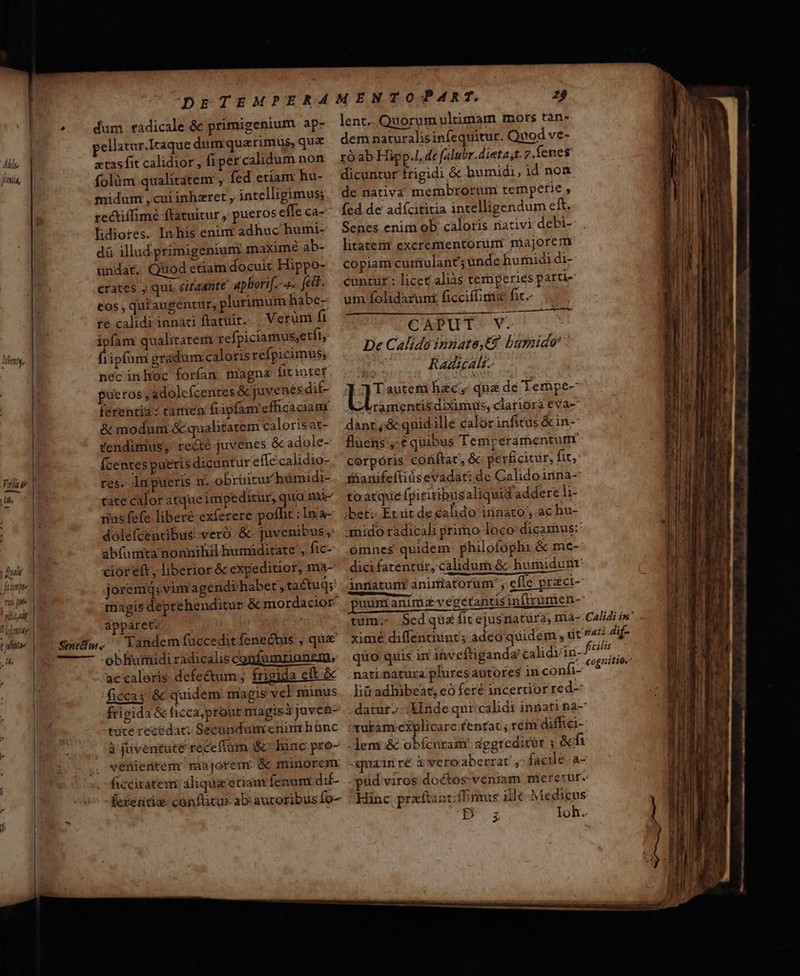 DE TEMPERAMENTO PART. 29
dum radicale & primigenium ap-
pellatur. Itaque dum quærimus, quæ
ætas fit calidior, ſi per calidum non
ſolùm qualitatem, ſed etiam hu-
midum, cui inhæret, intelligimus;
rectiſſimè ſtatuitur, pueros eſſe ca-
lidiores. In his enim adhuc humi-
dū illud primigenium maximè ab-
undat. Quod etiam docuit Hippo-
crates, qui citaante aphoriſ. 4. ſect.
eos, qui augentur, plurimum habe-
re calidi innati ſtatuit. Verùm ſi
ipſam qualitatem reſpiciamus, etſi,
ſi ipſum gradum caloris reſpicimus,
nec in hoc forſan magna ſit inter
pueros, adoleſcentes & juvenes dif-
ferentia: tamen ſi ipſam efficaciam
& modum & qualitatem caloris at-
tendimus, rectè juvenes & adole-
ſcentes pueris dicuntur eſſe calidio-
res. In pueris n. obruitur humidi-
tate calor atque impeditur, quo mi-
nus ſeſe liberè exſerere poſſit: In a-
doleſcentibus verò & juvenibus,
abſumta nonnihil humiditate, fic-
cior eſt, liberior & expeditior, ma-
joremq; vim agendi habet, tactuq;
magis deprehenditur & mordacior
apparet.
Senectus. Tandem ſuccedit ſenectus, quæ
ob humidi radicalis conſumtionem,
ac caloris defectum, frigida eſt &
ſicca; & quidem magis vel minus
frigida & ſicca, prout magis à juven-
tute recedat. Secundum enim hunc
à juventute receſſum & hinc pro-
venientem majorem & minorem
ſiccitatem aliquæ etiam ſenum dif-
ferentiæ conſtitui ab autoribus ſo-
lent. Quorum ultimam mors tan-
dem naturalis inſequitur. Quod ve-
rò ab Hipp. l. de ſalubr. dieta, t. 7. ſenes
dicuntur frigidi & humidi, id non
de nativa membrorum temperie,
ſed de adſcititia intelligendum eſt.
Senes enim ob caloris nativi debi-
litatem excrementorum majorem
copiam cumulant; unde humidi di-
cuntur: licet aliàs temperies parti-
um ſolidarum ſicciſſima fit.
CAPUT V.
De Calido innato, & humido
Radicali.
UT autem hæc, quæ de Tempe-
ramentis diximus, clariora eva-
dant, & quid ille calor inſitus & in-
fluens, è quibus Temperamentum
corporis conſtat, & perficitur, ſit,
manifeſtiùs evadat: de Calido inna-
to atque ſpiritibus aliquid addere li-
bet. Et ut de calido innato, ac hu-
mido radicali primo loco dicamus:
omnes quidem philoſophi & me-
dici fatentur, calidum & humidum
innatum animatorum, eſſe præci-
puum animæ vegetantis inſtrumen-
tum. Sed quæ ſit ejus natura, ma- Calidi in-
ximè diſſentiunt; adeo quidem, ut nati dif-
quo quis in inveſtiganda calidi in- ficilis
nati natura plures autores in conſi- cognitio.
liū adhibeat, eò ferè incertior red-
datur. Unde qui calidi innati na-
turam explicare tentat, rem diffici-
lem & obſcuram aggreditur; & ſi
quain re à vero aberrat, facilè a-
pud viros doctos veniam meretur.
Hinc præſtantiſſimus ille Medicus
D 3 Ioh.